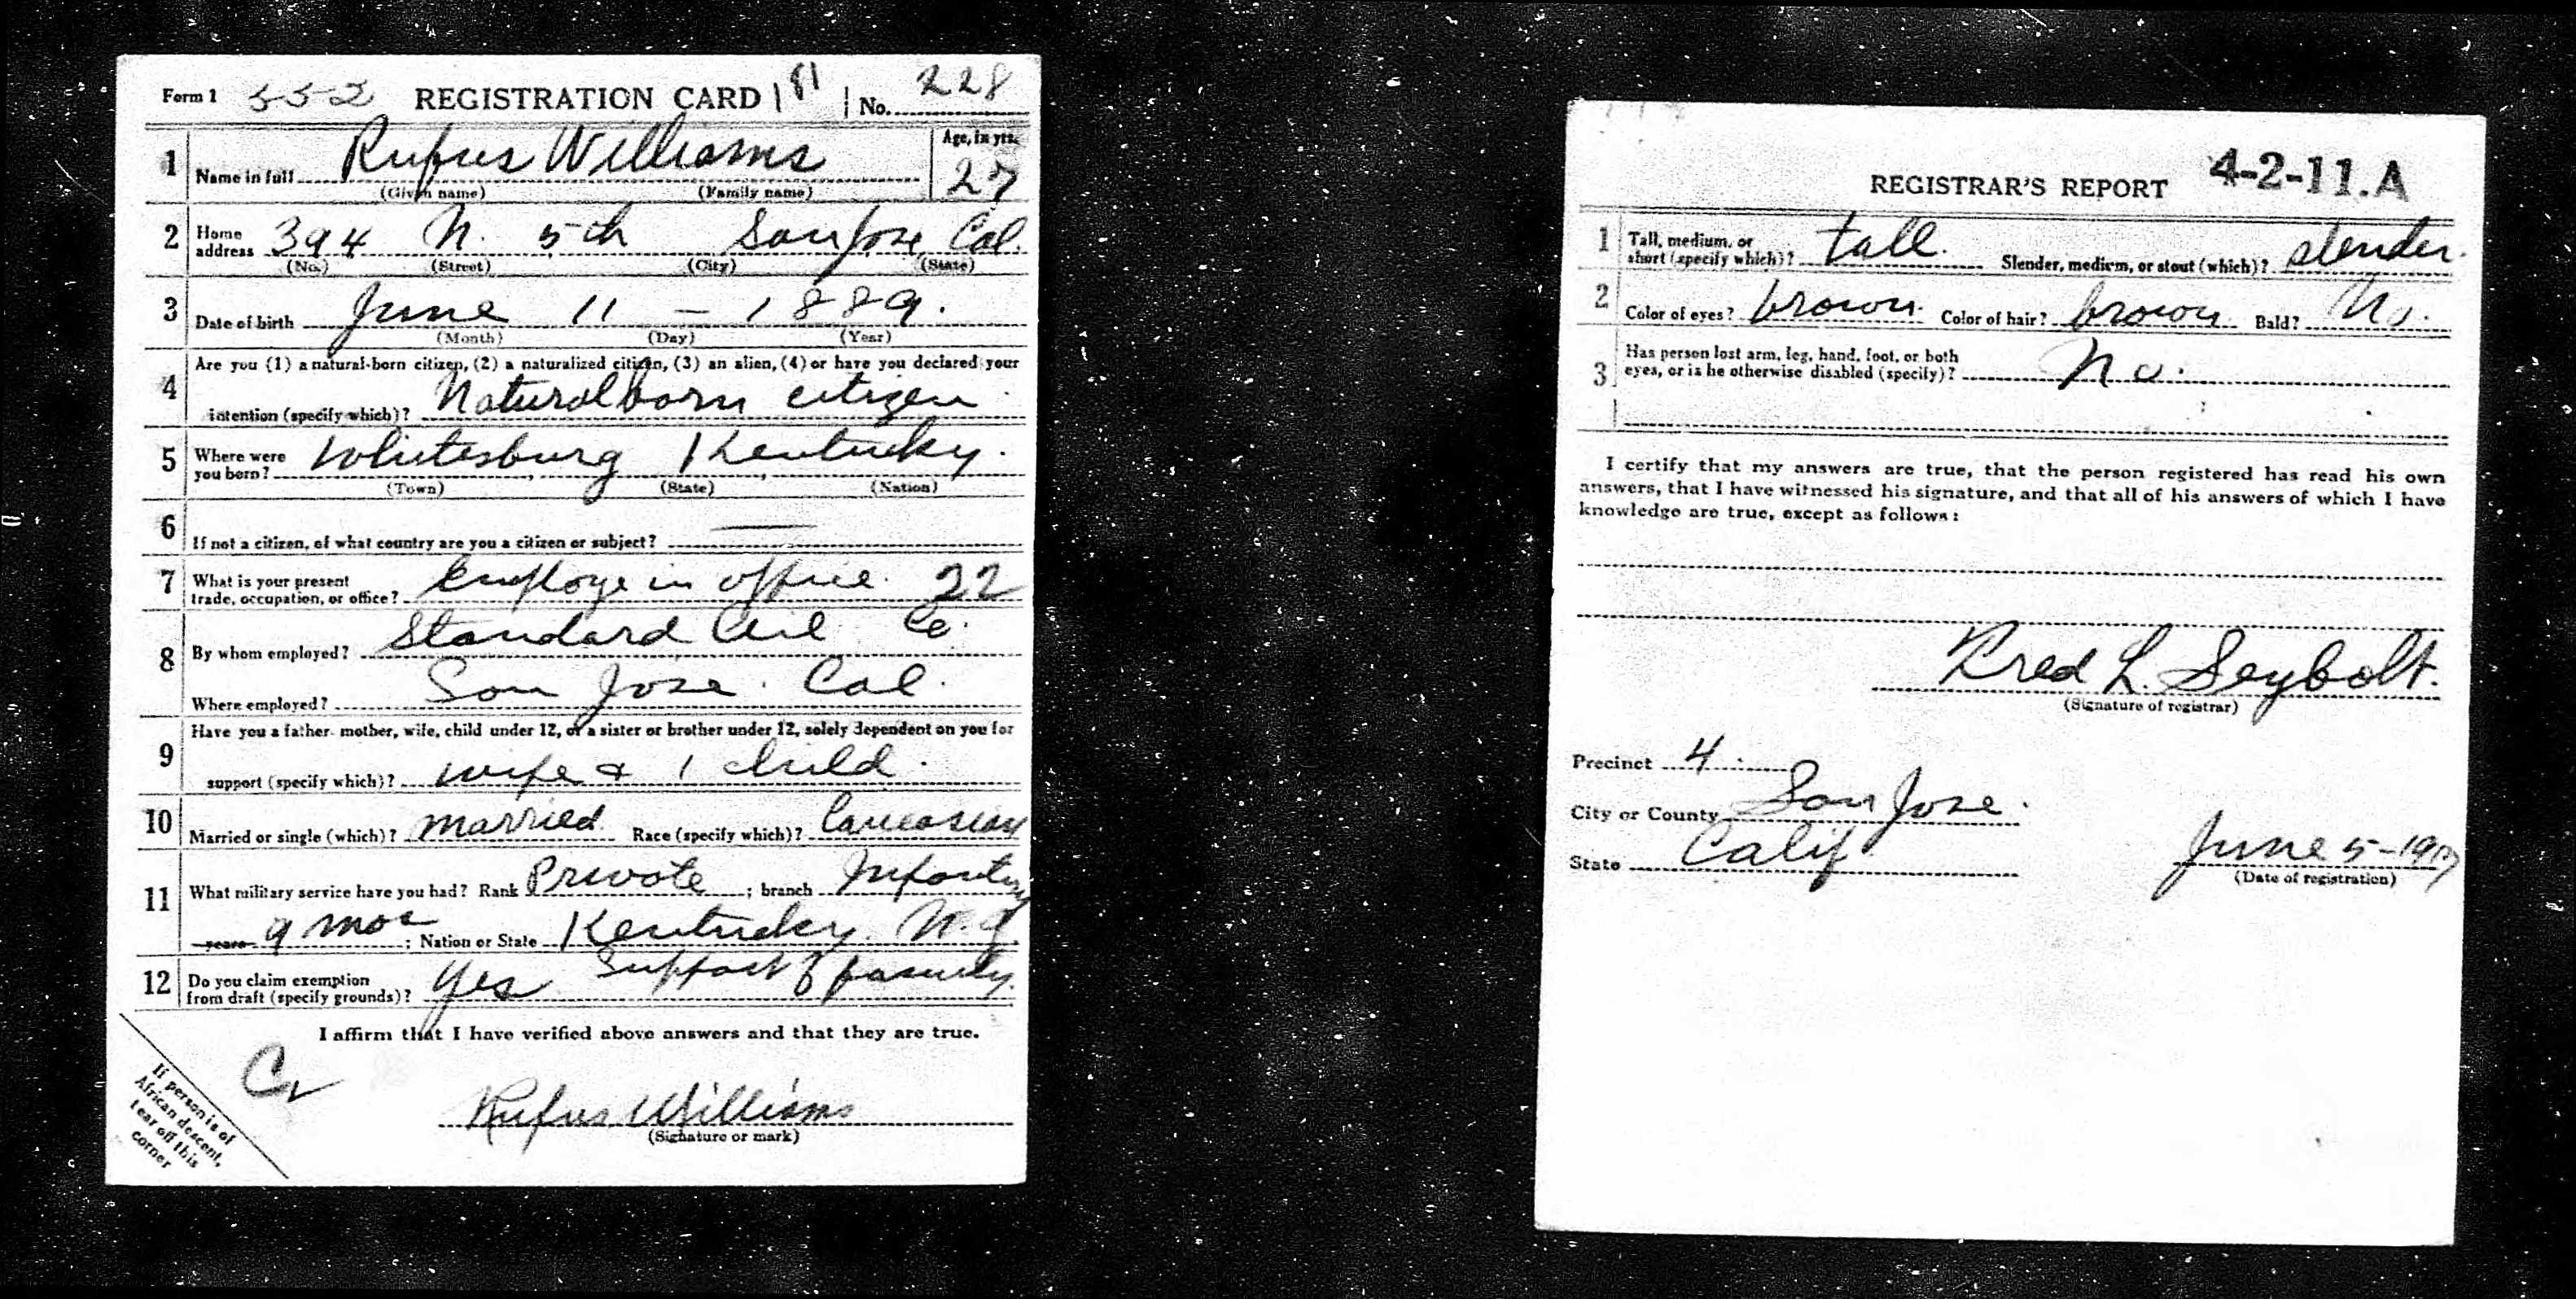 Form 1 552 REGISTRATION CARD 181 No. 228
1 Name in full Rufus Williams Age, in yrs. 27
(Given name) (Family name)
2 Home address 394 N. 5th San Jose, Cal.
(No.) (Street) (City) (State)
3 Date of birth June 11 - 1889.
(Month) (Day) (Year)
4 Are you (1) a natural-born citizen, (2) a naturalized citizen, (3) an alien, (4) or have you declared your
intention (specify which)? Natural born citizen.
5 Where were you born? Whitesburg Kentucky.
(Town) (State) (Nation)
6 If not a citizen, of what country are you a citizen or subject?
7 What is your present trade, occupation, or office? Employe in office. 22
8 By whom employed? Standard Oil Co.
Where employed? San Jose. Cal.
9 Have you a father, mother, wife, child under 12, or a sister or brother under 12, solely dependent on you for
support (specify which)? wife & 1 child.
10 Married or single (which)? married Race (specify which)? Caucasian
11 What military service have you had? Rank Private ; branch Infantry
years 9 mos ; Nation or State Kentucky N.G.
12 Do you claim exemption from draft (specify grounds)? Yes Support of family.
I affirm that I have verified above answers and that they are true.
Rufus Williams
(Signature or mark)
If person is of
African descent,
tear off this
corner
REGISTRAR'S REPORT 4-2-11.A
1 Tall, medium, or short (specify which)? tall. Slender, medium, or stout (which)? slender.
2 Color of eyes? brown. Color of hair? brown Bald? No.
3 Has person lost arm, leg, hand, foot, or both eyes, or is he otherwise disabled (specify)? No.
I certify that my answers are true, that the person registered has read his own
answers, that I have witnessed his signature, and that all of his answers of which I have
knowledge are true, except as follows:
Fred L. Seybolt.
(Signature of registrar)
Precinct 4.
City or County San Jose.
State Calif. June 5-1917
(Date of registration)